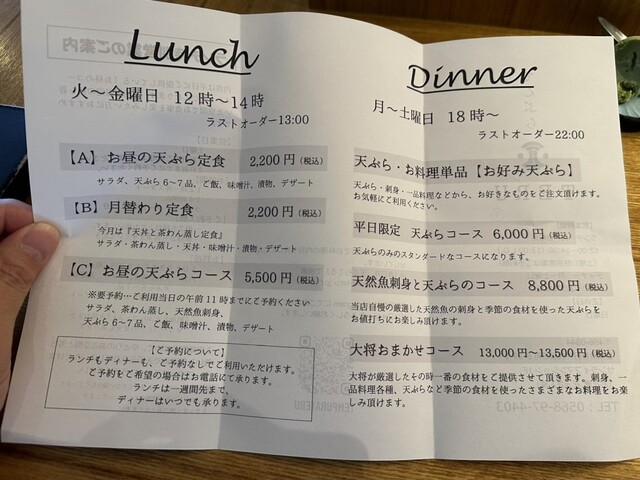 Lunch
火～金曜日 12時～14時
ラストオーダー13:00
【A】お昼の天ぷら定食 2,200円(税込)
サラダ、天ぷら6～7品、ご飯、味噌汁、漬物、デザート
【B】月替わり定食 2,200円(税込)
今月は『天丼と茶わん蒸し定食』
サラダ・茶わん蒸し・天丼・味噌汁・漬物・デザート
【C】お昼の天ぷらコース 5,500円(税込)
※要予約…ご利用当日の午前11時までにご予約ください
サラダ、茶わん蒸し、天然魚刺身、
天ぷら6～7品、ご飯、味噌汁、漬物、デザート
【ご予約について】
ランチもディナーも、ご予約なしでご利用いただけます。
ご予約をご希望の場合はお電話にて承ります。
ランチは一週間先まで、
ディナーはいつでも承ります。
Dinner
月～土曜日 18時～
ラストオーダー22:00
天ぷら・お料理単品【お好み天ぷら】
天ぷら・刺身・一品料理などから、お好きなものをご注文頂けます。
お気軽にご利用ください。
平日限定 天ぷらコース 6,000円(税込)
天ぷらのみのスタンダードなコースになります。
天然魚刺身と天ぷらのコース 8,800円(税込)
当店自慢の厳選した天然魚の刺身と季節の食材を使った天ぷらを
お値打ちにお楽しみ頂けます。
大将おまかせコース 13,000円～13,500円(税込)
大将が厳選したその時一番の食材をご提供させて頂きます。刺身、一
品料理各種、天ぷらなど季節の食材を使ったさまざまなお料理をお楽
しみ頂けます。